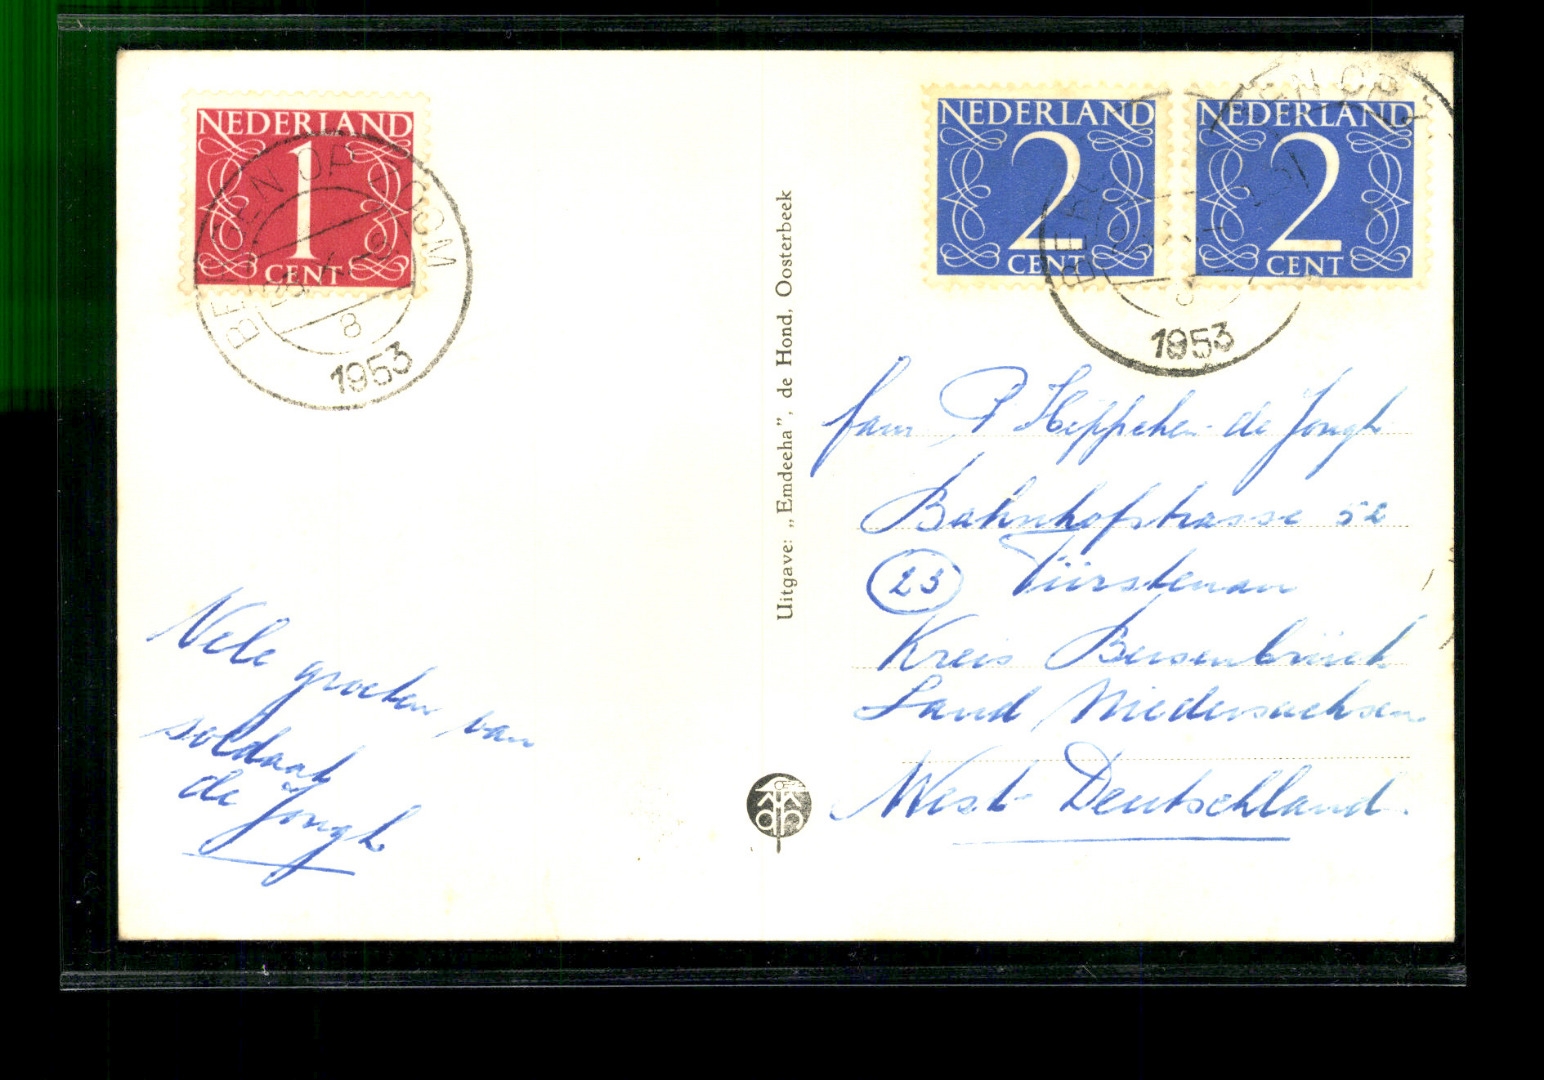 NEDERLAND
1
CENT
BERGEN OP ZOOM
8
1953
NEDERLAND
2
CENT
NEDERLAND
2
CENT
1953
Uitgave: „Emdeeha”, de Hond, Oosterbeek
fam P Heppehen-de Jongh
Bahnhofstrasse 52
23 Fürstenau
Kreis Bersenbrück
Land Niedersachsen
West-Deutschland.
Vele groeten van
soldaat
de Jongh